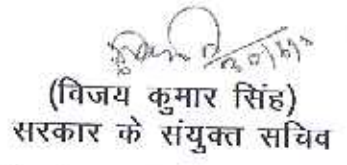 (विजय कुमार सिंह)
सरकार के संयुक्त सचिव